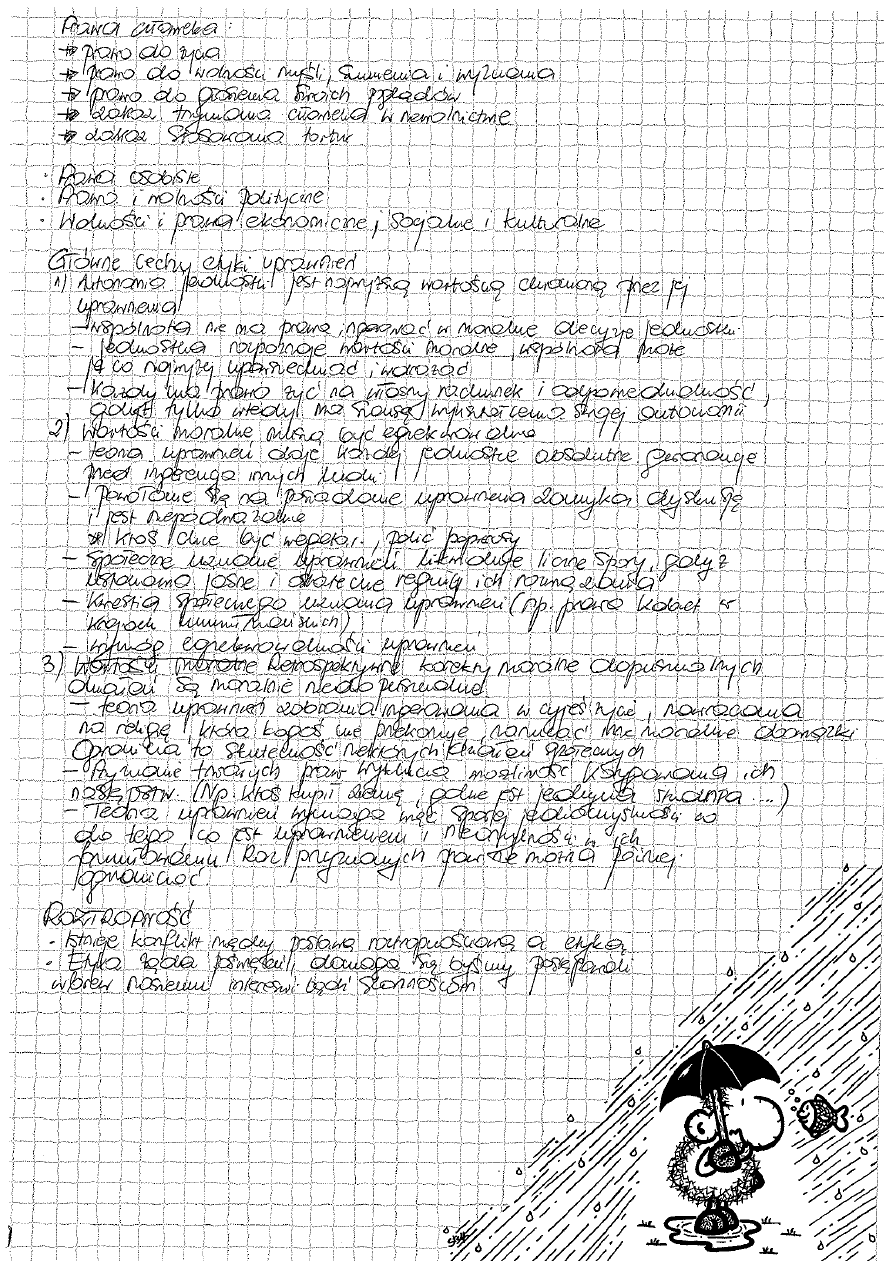 Prawa człowieka:
→ prawo do życia
→ prawo do wolności myśli, sumienia i wyznania
→ prawo do głoszenia swoich poglądów
→ zakaz trzymania człowieka w niewolnictwie
→ zakaz stosowania tortur
· Prawa osobiste
· Prawa i wolności polityczne
· Wolności i prawa ekonomiczne, socjalne i kulturalne
Główne cechy etyki uprawnień
1) Autonomia jednostki jest najwyższą wartością chronioną przez jej
uprawnienia
- wspólnota nie ma prawa ingerować w moralne decyzje jednostki
- jednostka rozpoznaje wartości moralne, wspólnota może
ją co najwyżej
- każdy ma prawo żyć na własny rachunek i odpowiedzialność,
gdyż tylko wtedy ma szansę wykształcenia swojej autonomii
2) Wartości moralne muszą być egzekwowalne
- teoria uprawnień daje każdej jednostce absolutne gwarancje
przed ingerencją innych ludzi
- powołanie się na posiadanie uprawnienia zamyka dyskusję
i jest niepodważalne
* ktoś chce być wegetar., palić papierosy
- społeczne uznanie uprawnień likwiduje liczne spory, gdyż
ustanawia jasne i ostateczne reguły ich rozwiązania
- kwestia społecznego uznania uprawnień (np. prawa kobiet w
krajach muzułmańskich)
- wymóg egzekwowalności uprawnień
3) Retrospektywne korekty moralne dopuszczalnych
działań są moralnie niedopuszczalne
- teoria uprawnień zabrania ingerowania w czyjeś życie, nawracania
na religię, która kogoś nie przekonuje, narzucać mu moralne obowiązki
Ogranicza to skuteczność niektórych działań społecznych
- Przyznanie trwałych praw wyklucza możliwość ich
następstw. (Np. ktoś kupił ziemię, gdzie jest jedyna studnia ...)
- Teoria uprawnień wymaga więc sporej jednomyślności co
do tego co jest uprawnieniem i nieomylności w ich
formułowaniu. Raz przyznanych praw nie można później
ograniczać.
ROZTROPNOŚĆ
· Istnieje konflikt między postawą roztropnościową a etyką
· Etyka żąda poświęceń, domaga się byśmy postępowali
wbrew naszemu interesowi bądź skłonnościom